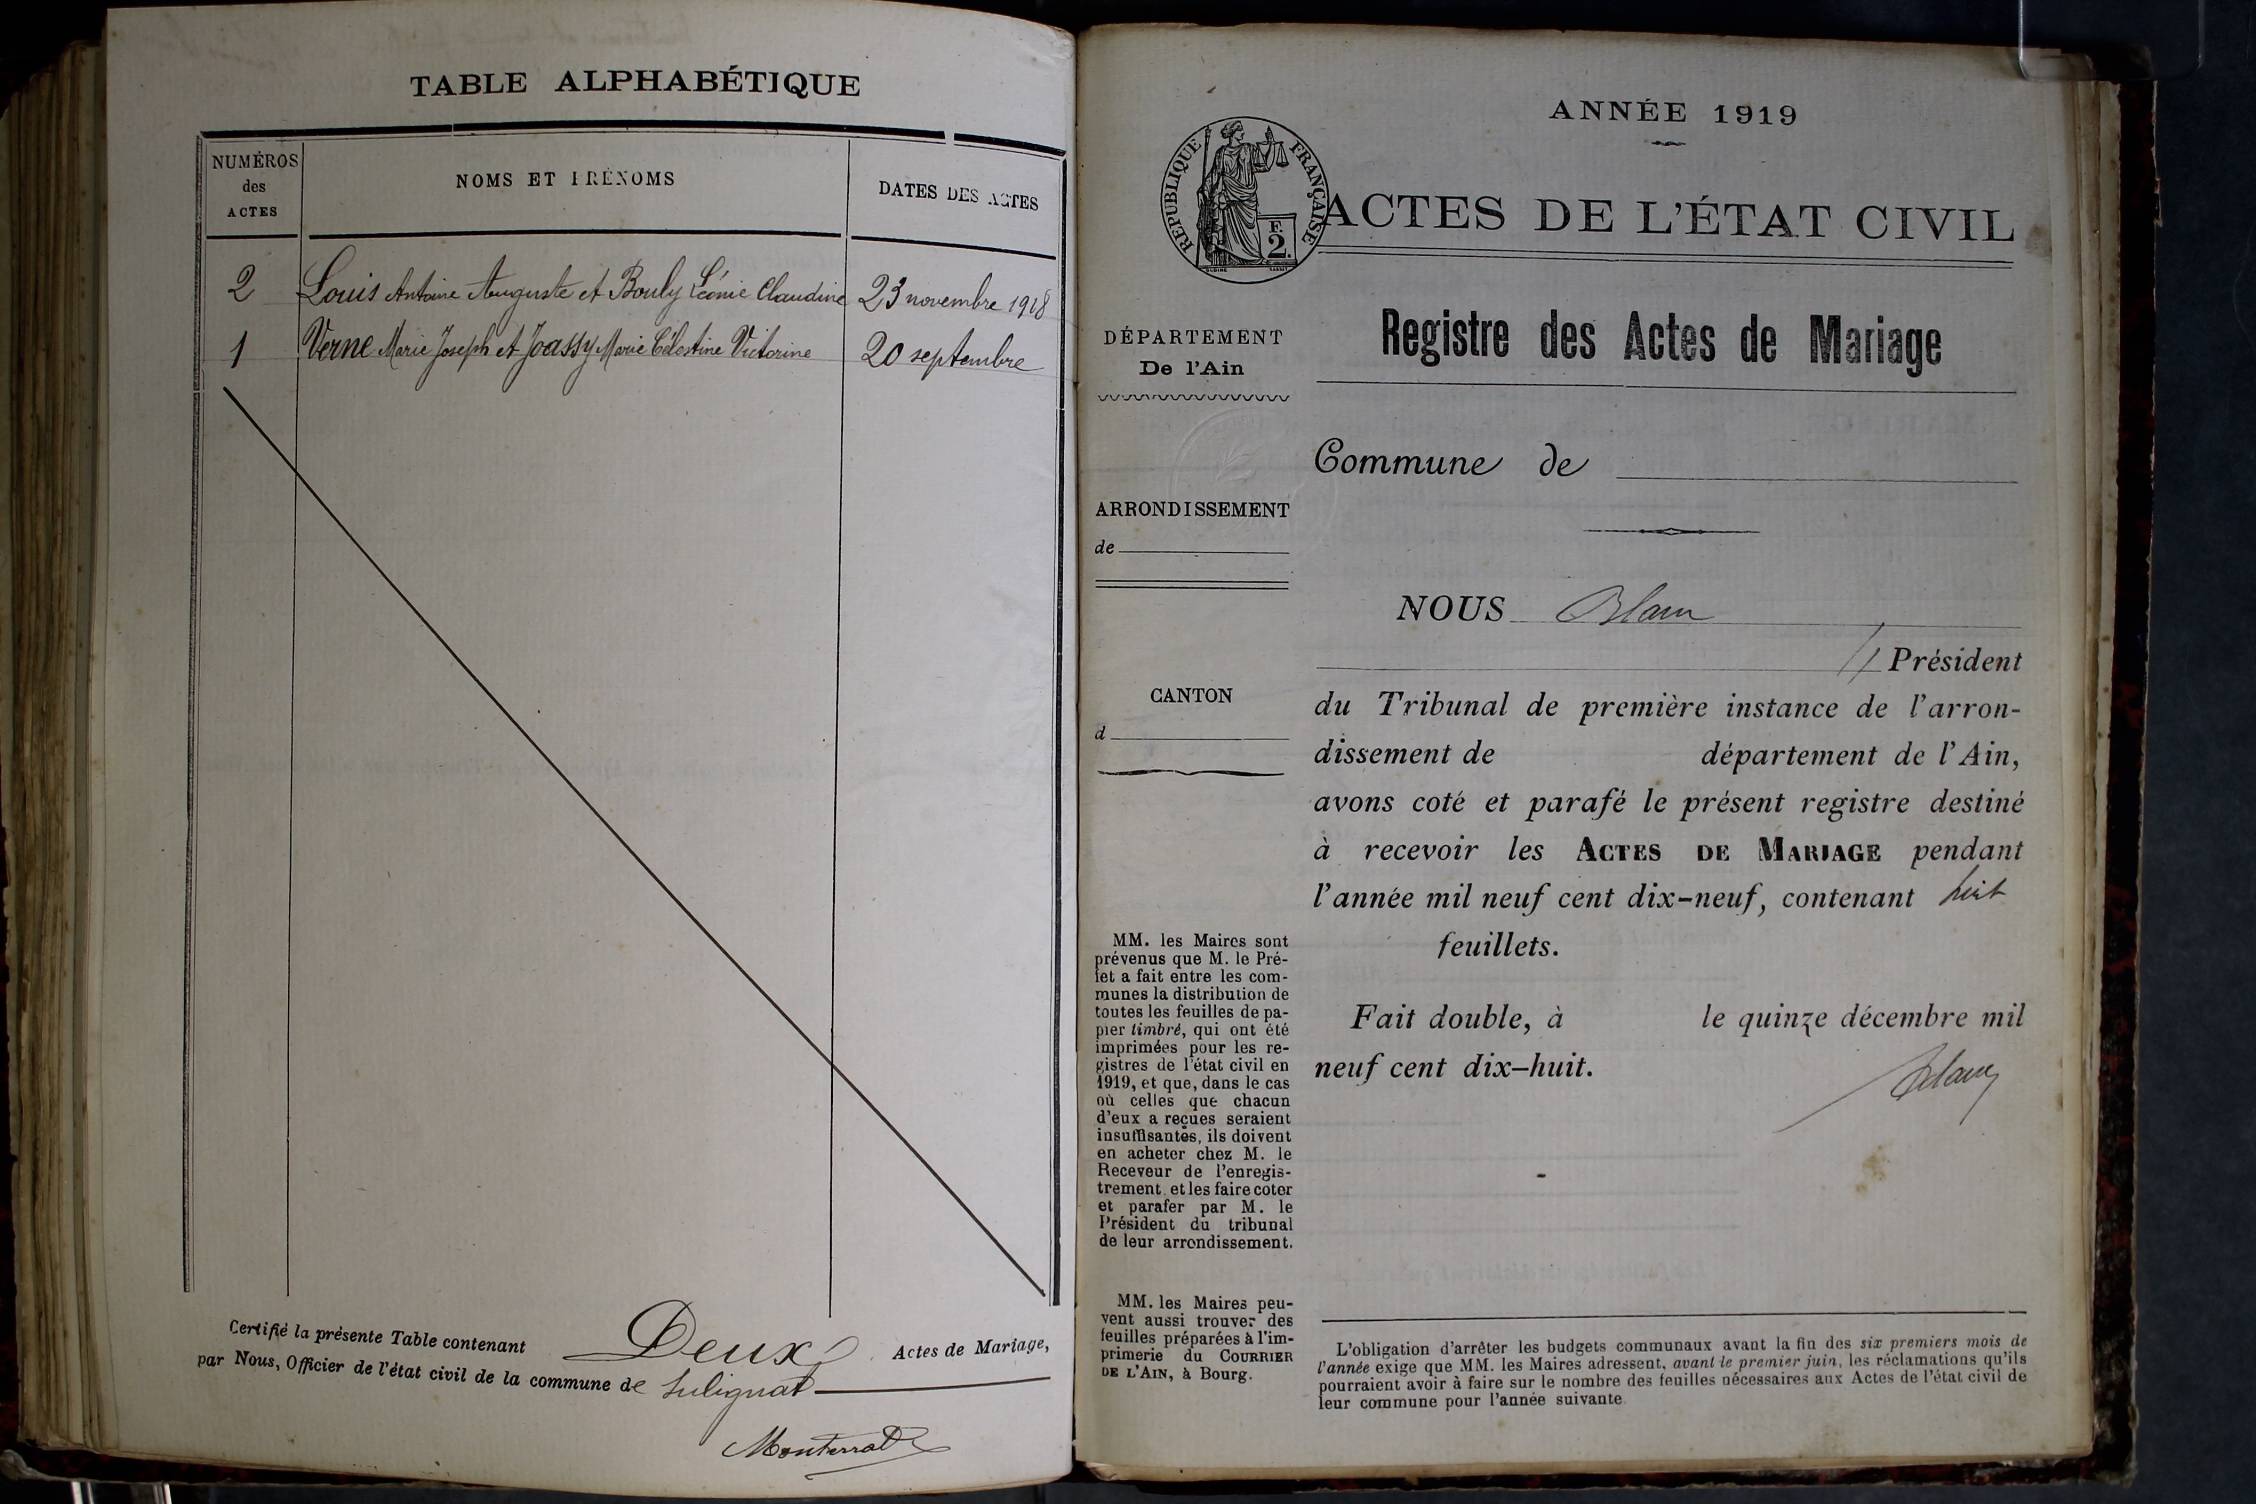 TABLE ALPHABÉTIQUE
NUMÉROS
des
ACTES
NOMS ET PRÉNOMS
DATES DES ACTES
2 Louis Antoine Auguste et Bouly Léonie Claudine 23 novembre 1918
1 Verne Marie Joseph et Joassy Marie Célestine Victorine 20 septembre
Certifié la présente Table contenant Deux Actes de Mariage,
par Nous, Officier de l'état civil de la commune de Sulignat
Monterrat
ANNÉE 1919
RÉPUBLIQUE FRANÇAISE
F.
2.
ACTES DE L'ÉTAT CIVIL
DÉPARTEMENT
De l'Ain
ARRONDISSEMENT
de
CANTON
d
MM. les Maires sont
prévenus que M. le Pré-
fet a fait entre les com-
munes la distribution de
toutes les feuilles de pa-
pier timbré, qui ont été
imprimées pour les re-
gistres de l'état civil en
1919, et que, dans le cas
où celles que chacun
d'eux a reçues seraient
insuffisantes, ils doivent
en acheter chez M. le
Receveur de l'enregis-
trement et les faire coter
et parafer par M. le
Président du tribunal
de leur arrondissement.
MM. les Maires peu-
vent aussi trouver des
feuilles préparées à l'im-
primerie du COURRIER
DE L'AIN, à Bourg.
Registre des Actes de Mariage
Commune de
NOUS Blanc
Président
du Tribunal de première instance de l'arron-
dissement de département de l'Ain,
avons coté et parafé le présent registre destiné
à recevoir les ACTES DE MARIAGE pendant
l'année mil neuf cent dix-neuf, contenant huit
feuillets.
Fait double, à le quinze décembre mil
neuf cent dix-huit.
Blanc
L'obligation d'arrêter les budgets communaux avant la fin des six premiers mois de
l'année exige que MM. les Maires adressent, avant le premier juin, les réclamations qu'ils
pourraient avoir à faire sur le nombre des feuilles nécessaires aux Actes de l'état civil de
leur commune pour l'année suivante.